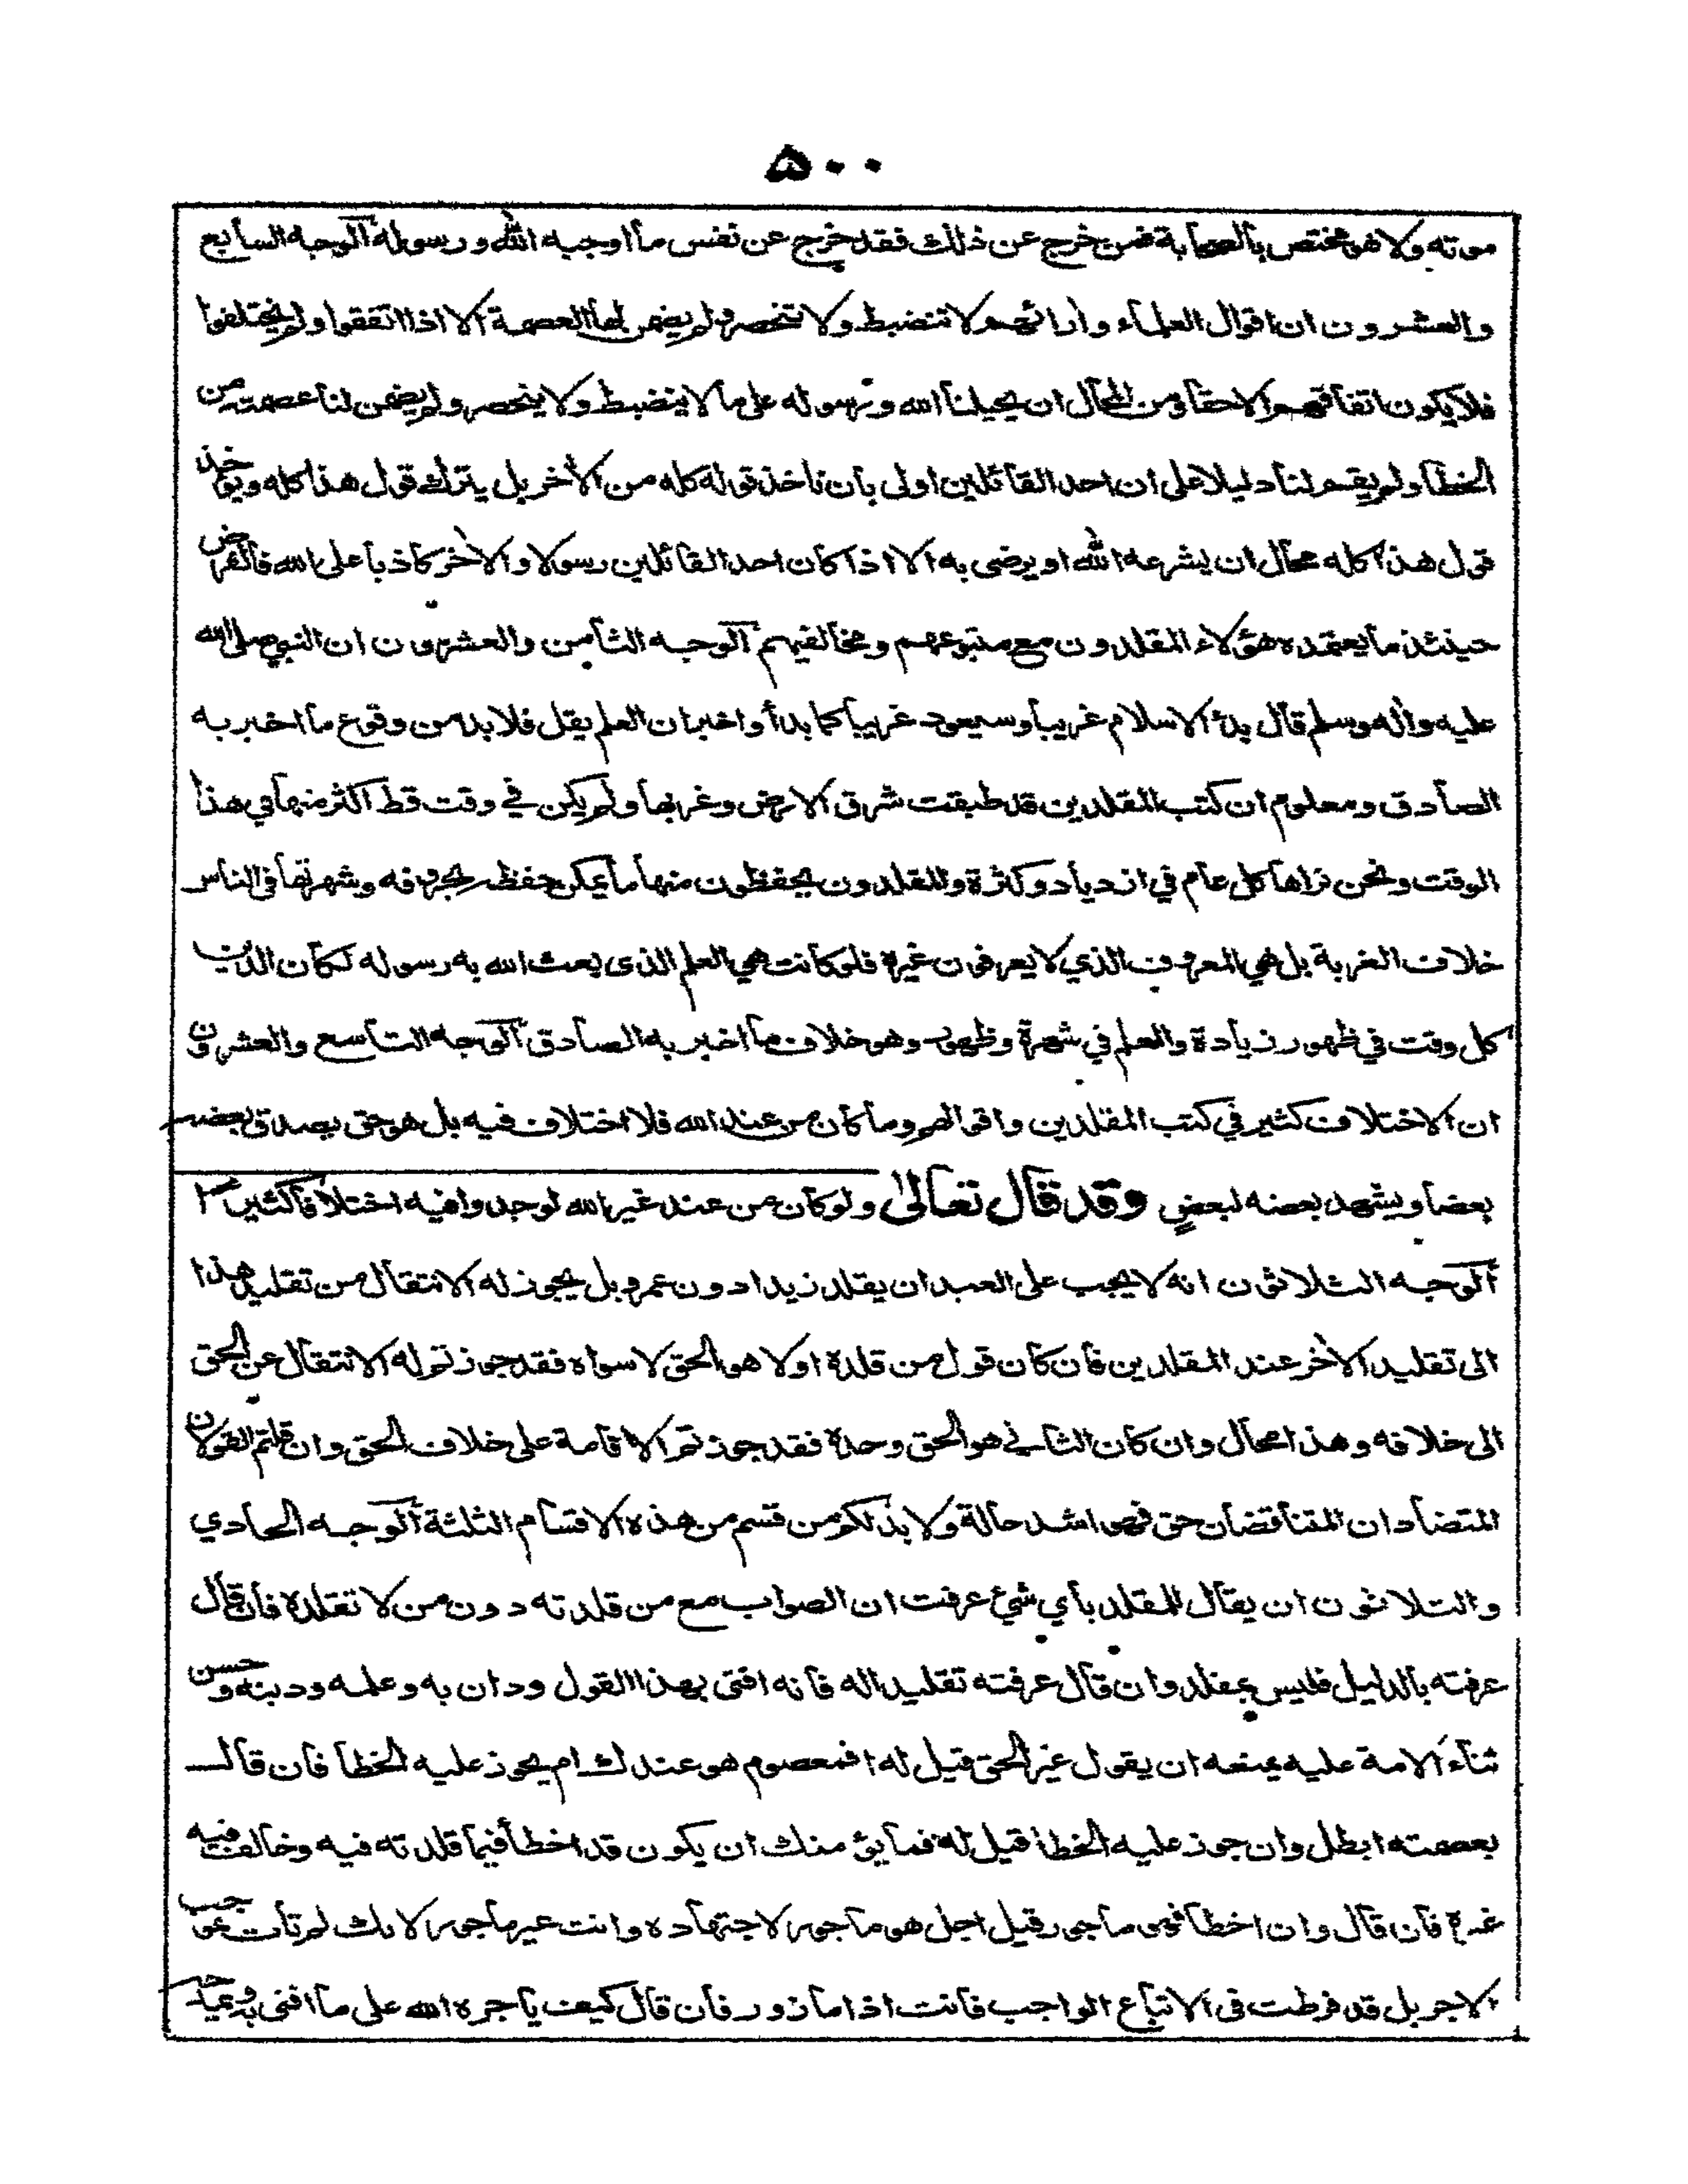 ۵۰۰
موته ولا هو مختص بالصحابة فمن خرج عن ذلك فقد خرج عن نفس ما اوجبه الله ورسوله الوجه السابع
والعشرون ان اقوال العلماء وارائهم لا تنضبط ولا تنحصر ولم يضمن لها العصمة الا اذا اتفقوا ولم يختلفوا
فلا يكون اتفاقهم الا حقا ومن المحال ان يحيلنا الله ورسوله على ما لا ينضبط ولا ينحصر ولم يضمن لنا عصمته من
الخطأ ولم يقم لنا دليلا على ان احد القائلين اولى بان ناخذ قوله كله من الاخر بل يترك قول هذا كله ويوخذ
قول هذا كله محال ان يشرعه الله او يرضى به الا اذا كان احد القائلين رسولا والاخر كاذبا على الله فالفرض
حينئذ ما يعتمده هؤلاء المقلدون مع متبوعهم ومخالفيهم الوجه الثامن والعشرون ان النبي صلى الله
عليه واله وسلم قال بدئ الاسلام غريبا وسيعود غريبا كما بدأ واخبر ان العلم يقل فلا بد من وقوع ما اخبر به
الصادق ومعلوم ان كتب المقلدين قد طبقت شرق الارض وغربها ولم يكن في وقت قط اكثر منها في هذا
الوقت ونحن نراها كل عام في ازدياد وكثرة والمقلدون يحفظون منها ما يمكن حفظه بحروفه وشهرتها في الناس
خلاف الغربة بل هي المعروف الذي لا يعرفون غيره فلو كانت هي العلم الذى بعث الله به رسوله لكان الدين
كل وقت في ظهور زيادة والعلم في شهرة وظهور وهو خلاف ما اخبر به الصادق الوجه التاسع والعشرون
ان الاختلاف كثير في كتب المقلدين واقوالهم وما كان من عند الله فلا اختلاف فيه بل هو حق يصدق بعضه
بعضا ويشهد بعضه لبعض وقد قال تعالى ولو كان من عند غير الله لوجدوا فيه اختلافا كثيرا
الوجه الثلاثون انه لا يجب على العبد ان يقلد زيدا دون عمرو بل يجوز له الانتقال من تقليد هذا
الى تقليد الاخر عند المقلدين فان كان قول من قلده اولا هو الحق لا سواه فقد جوزتم له الانتقال عن الحق
الى خلافه وهذا محال وان كان الثاني هو الحق وحده فقد جوزتم الاقامة على خلاف الحق وان قلتم القولان
المتضادان المتناقضان حق فهو اشد حالة ولا بد لكم من قسم من هذه الاقسام الثلثة الوجه الحادي
والثلاثون ان يقال للمقلد بأي شئ عرفت ان الصواب مع من قلدته دون من لا تقلده فان قال
عرفته بالدليل فليس بمقلد وان قال عرفته تقليدا له فانه افتى بهذا القول ودان به وعلمه ودينه وحسن
ثناء الامة عليه يمنعه ان يقول غير الحق قيل له افمعصوم هو عندك ام يجوز عليه الخطأ فان قال
بعصمته ابطل وان جوز عليه الخطأ قيل له فما يؤمنك ان يكون قد اخطأ فيما قلدته فيه وخالف فيه
غيره فان قال وان اخطأ فهو ماجور قيل اجل هو ماجور لاجتهاده وانت غير ماجور لانك لم تأت بموجب
الاجر بل قد فرطت فى الاتباع الواجب فانت اذا مازور فان قال كيف ياجره الله على ما افتى به